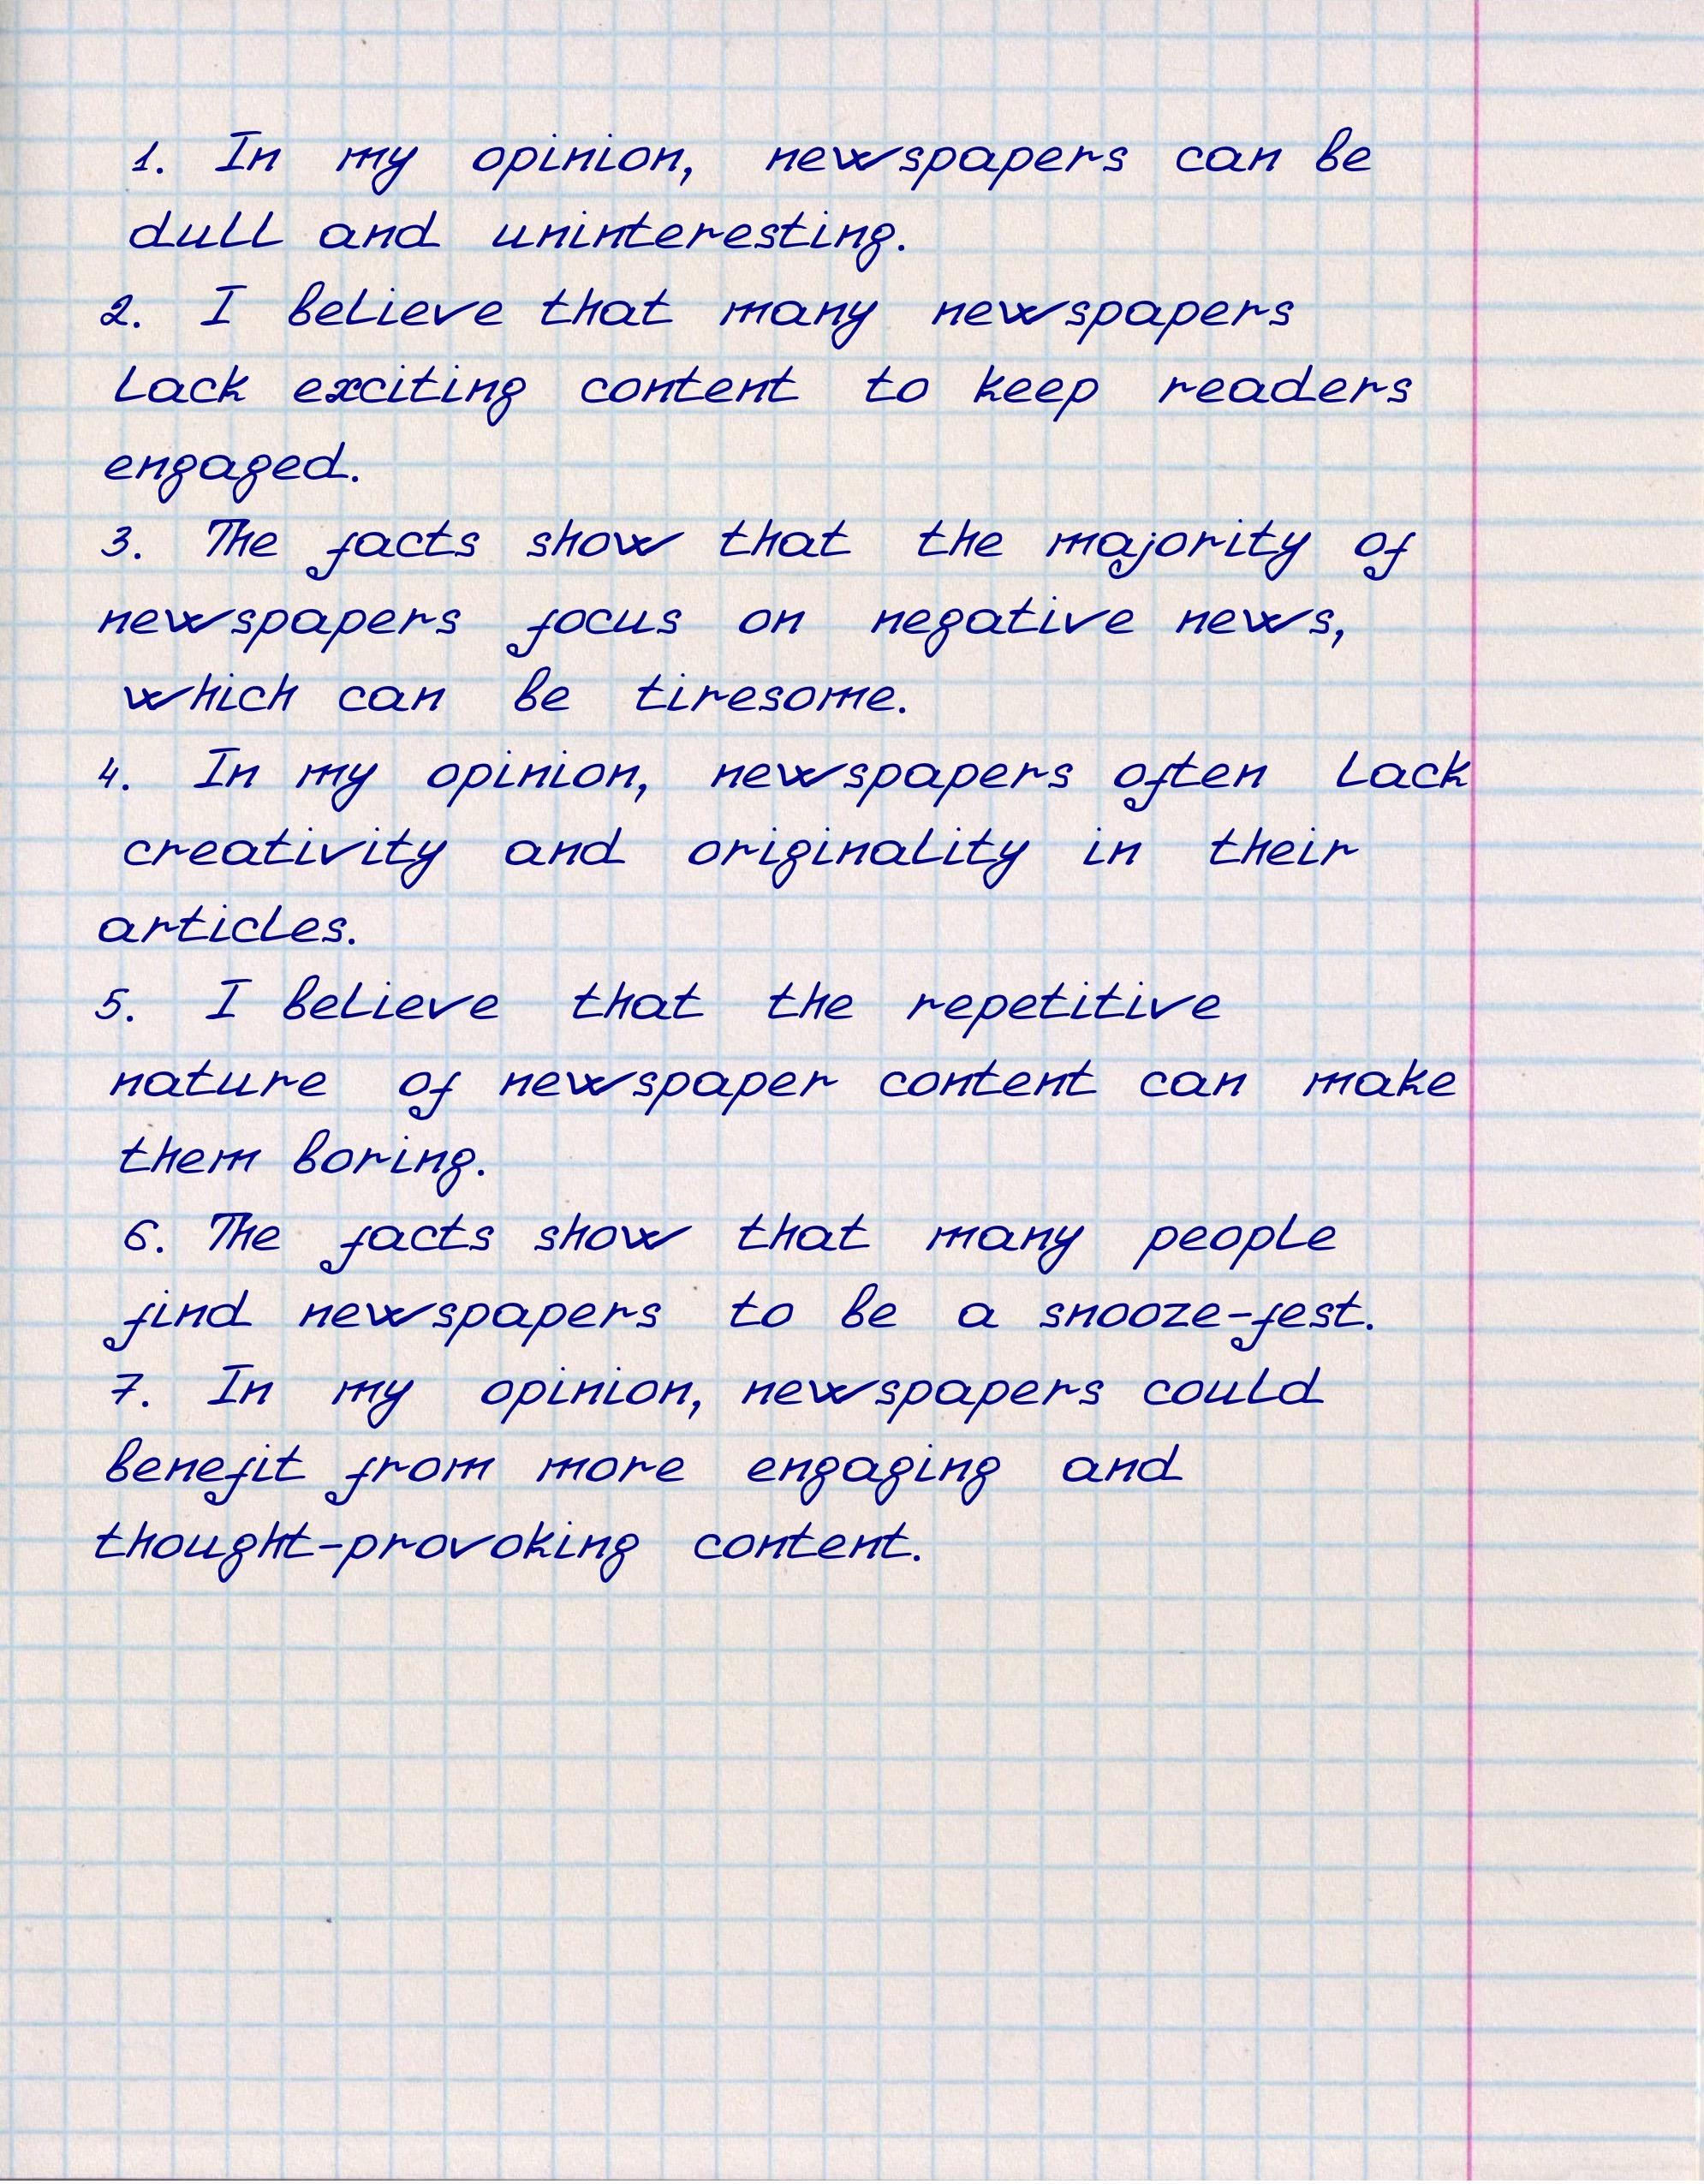 1. In my opinion, newspapers can be
dull and uninteresting.
2. I believe that many newspapers
lack exciting content to keep readers
engaged.
3. The facts show that the majority of
newspapers focus on negative news,
which can be tiresome.
4. In my opinion, newspapers often lack
creativity and originality in their
articles.
5. I believe that the repetitive
nature of newspaper content can make
them boring.
6. The facts show that many people
find newspapers to be a snooze-fest.
7. In my opinion, newspapers could
benefit from more engaging and
thought-provoking content.